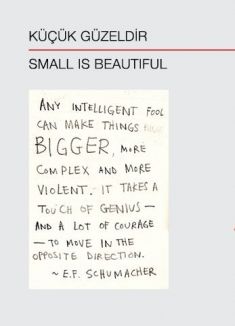 KÜÇÜK GÜZELDİR
SMALL IS BEAUTIFUL
ANY INTELLIGENT FOOL
CAN MAKE THINGS
BIGGER, MORE
COMPLEX AND MORE
VIOLENT. IT TAKES A
TOUCH OF GENIUS —
AND A LOT OF COURAGE
— TO MOVE IN THE
OPPOSITE DIRECTION.
~ E.F. SCHUMACHER